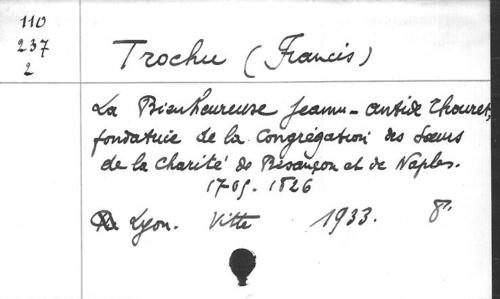 110
237
2
Trochu (Francis)
La Bienheureuse Jeanne-Antide Thouret,
fondatrice de la Congrégation des Sœurs
de la Charité de Besançon et de Naples.
1765-1826
Lyon. Vitte 1933. 8°.